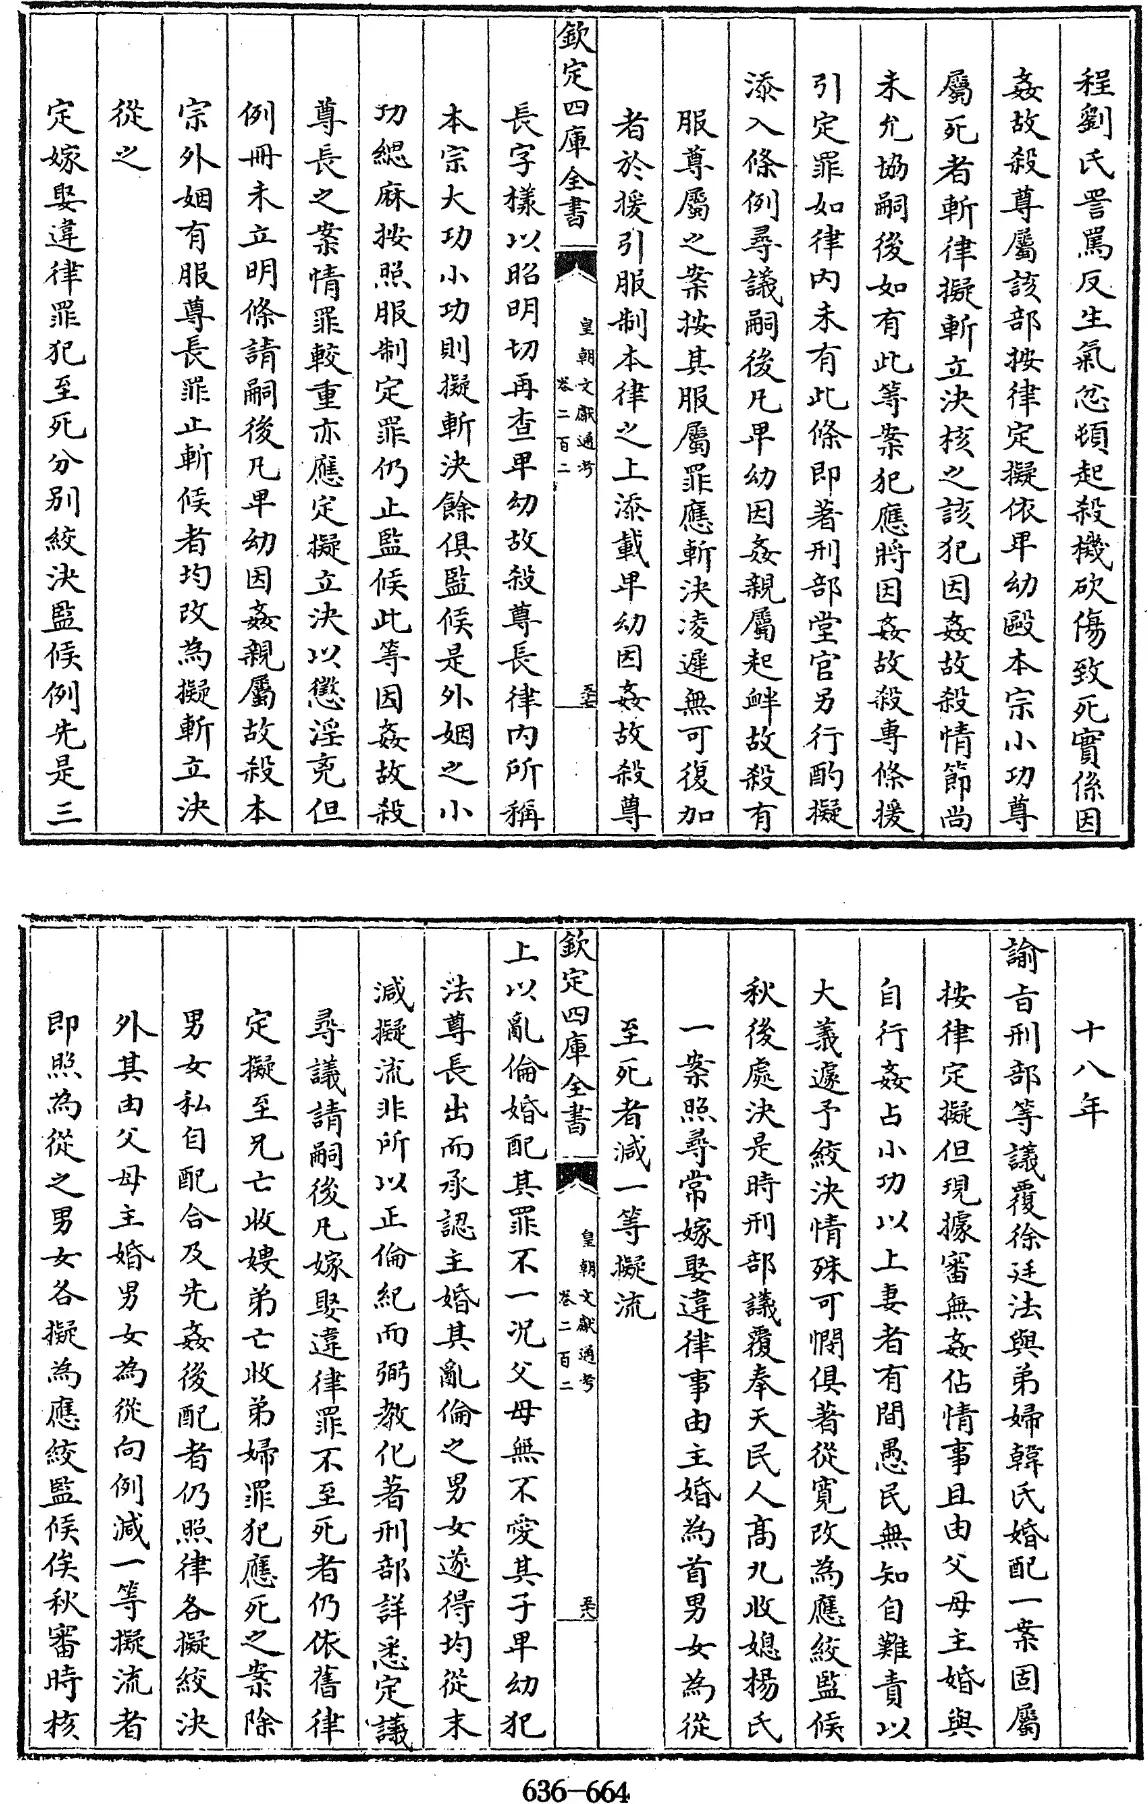 程劉氏詈罵反生氣忿頓起殺機砍傷致死實係因
姦故殺尊屬該部按律定擬依卑幼毆本宗小功尊
屬死者斬律擬斬立決核之該犯因姦故殺情節尚
未允協嗣後如有此等案犯應將因姦故殺專條援
引定罪如律内未有此條即著刑部堂官另行酌擬
添入條例尋議嗣後凡卑幼因姦親屬起衅故殺有
服尊屬之案按其服屬罪應斬決凌遲無可復加
者於援引服制本律之上添載卑幼因姦故殺尊
欽定四庫全書
皇朝文獻通考
卷二百二
至
長字樣以昭明切再查卑幼故殺尊長律内所稱
本宗大功小功則擬斬決餘俱監候是外姻之小
功緦麻按照服制定罪仍止監候此等因姦故殺
尊長之案情罪較重亦應定擬立決以懲淫兇但
例冊未立明條請嗣後凡卑幼因姦親屬故殺本
宗外姻有服尊長罪止斬候者均改為擬斬立決
從之
定嫁娶違律罪犯至死分别絞決監候例先是三
十八年
諭旨刑部等議覆徐廷法與弟婦韓氏婚配一案固屬
按律定擬但現據審無姦佔情事且由父母主婚與
自行姦占小功以上妻者有間愚民無知自難責以
大義遽予絞決情殊可憫俱著從寛改為應絞監候
秋後處決是時刑部議覆奉天民人高九收媳楊氏
一案照尋常嫁娶違律事由主婚為首男女為從
至死者減一等擬流
欽定四庫全書
皇朝文獻通考
卷二百二
至八
上以亂倫婚配其罪不一况父母無不愛其子卑幼犯
法尊長出而承認主婚其亂倫之男女遂得均從末
減擬流非所以正倫紀而弼教化著刑部詳悉定議
尋議請嗣後凡嫁娶違律罪不至死者仍依舊律
定擬至兄亡收嫂弟亡收弟婦罪犯應死之案除
男女私自配合及先姦後配者仍照律各擬絞決
外其由父母主婚男女為從向例減一等擬流者
即照為從之男女各擬為應絞監候俟秋審時核
636-664